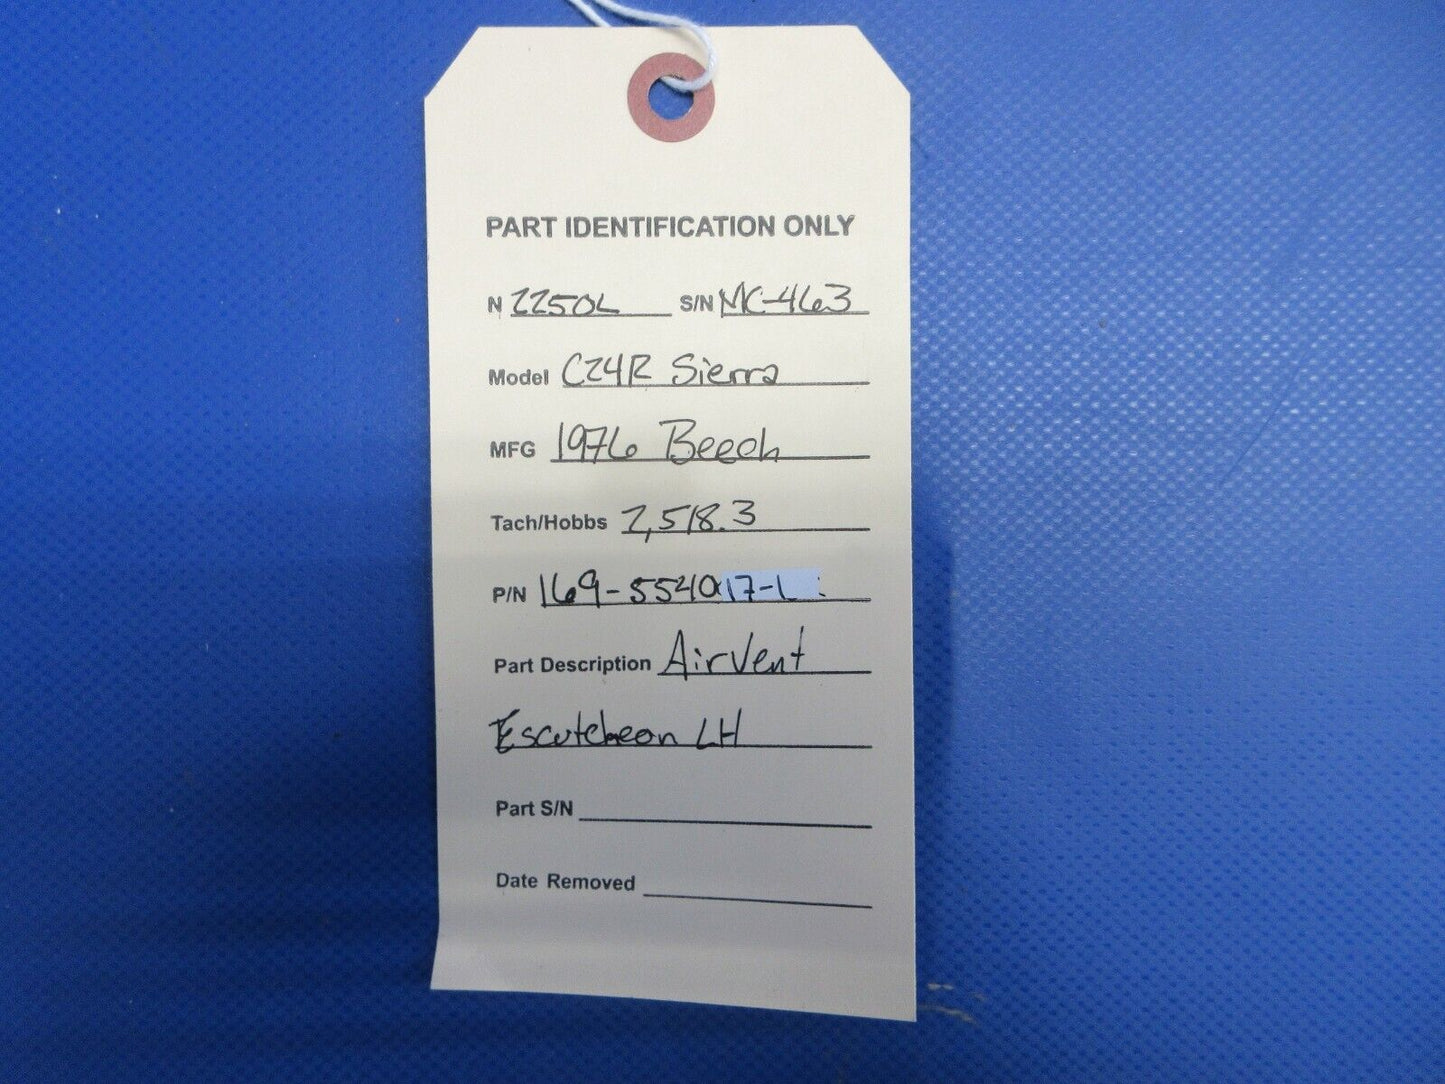 PART IDENTIFICATION ONLY
N 2250L S/N MC-463
Model C24R Sierra
MFG 1976 Beech
Tach/Hobbs 2,518.3
P/N 169-554017-1
Part Description Air Vent
Escutcheon LH
Part S/N
Date Removed